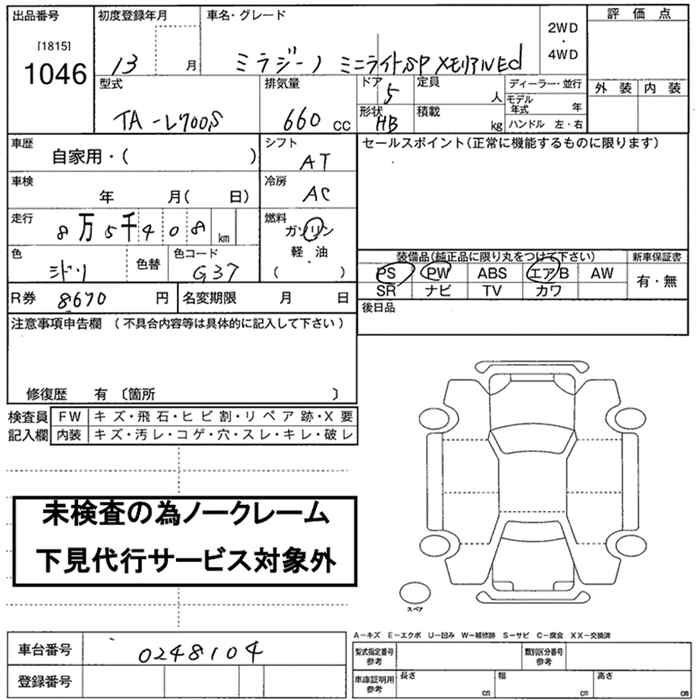 出品番号 初度登録年月 車名・グレード 評価点
[1815]
1046
13 月 ミラジーノ ミニライトSP メモリアルEd 2WD・4WD
型式 排気量 ドア 5 定員 人 ディーラー・並行 外装 内装
モデル年式 年
TA-L700S 660 cc 形状 HB 積載 kg ハンドル 左・右
車歴 シフト セールスポイント(正常に機能するものに限ります)
自家用・( ) AT
車検 年 月( 日) 冷房 AC
走行 8万5千408 km 燃料 ガソリン
軽・油
色 ミドリ 色替 色コード G37 ( )
装備品(純正品に限り丸をつけて下さい) 新車保証書
PS PW ABS エアB AW 有・無
SR ナビ TV カワ
R券 8670 円 名変期限 月 日 後日品
注意事項申告欄 (不具合内容等は具体的に記入して下さい)
修復歴 有 〔箇所 〕
検査員 FW キズ・飛石・ヒビ割・リペア跡・X要
記入欄 内装 キズ・汚レ・コゲ・穴・スレ・キレ・破レ
未検査の為ノークレーム
下見代行サービス対象外
スペア
A-キズ E-エクボ U-凹み W-補修跡 S-サビ C-腐食 XX-交換済
車台番号 0248104 型式指定番号 参考 類別区分番号 参考
登録番号 車庫証明用 参考 長さ cm 幅 cm 高さ cm